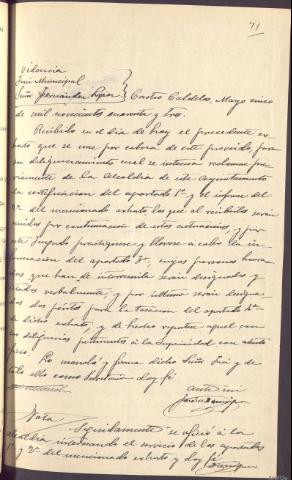 71
Videncia
Juez Municipal
Señor Fernández López } Castro Caldelas, Mayo cinco
de mil novecientos cuarenta y tres.
Recibido en el día de hoy el precedente ex
horto que se une por cabeza de este proveido, para
su diligenciamiento cual se interesa reclamese pre
viamente de la Alcaldia de este Ayuntamiento
la certificación del apartado 1º y el informe del
2º del mencionado exhorto los que al recibirlos serán
unidos por continuación de estas actuaciones, y por
este Juzgado practiquese y llevese a cabo la in
formación del apartado 3º cuyas personas honra
das que han de intervenirla serán designadas y
citadas verbalmente; y por ultimo serán designa
dos dos peritos para la tasación del apartado 4º
de dicho exhorto, y de hechos reportese aquel con
las diligencias pertinentes a la Superioridad con atento
oficio. Lo mandó y firma dicho Señor Juez y de
todo ello como Secretario doy fé
Ante mi
Nota
Seguidamente se ofició a la
Alcaldia interesando el servicio de los apartados
1º y 2º del mencionado exhorto y doy fé